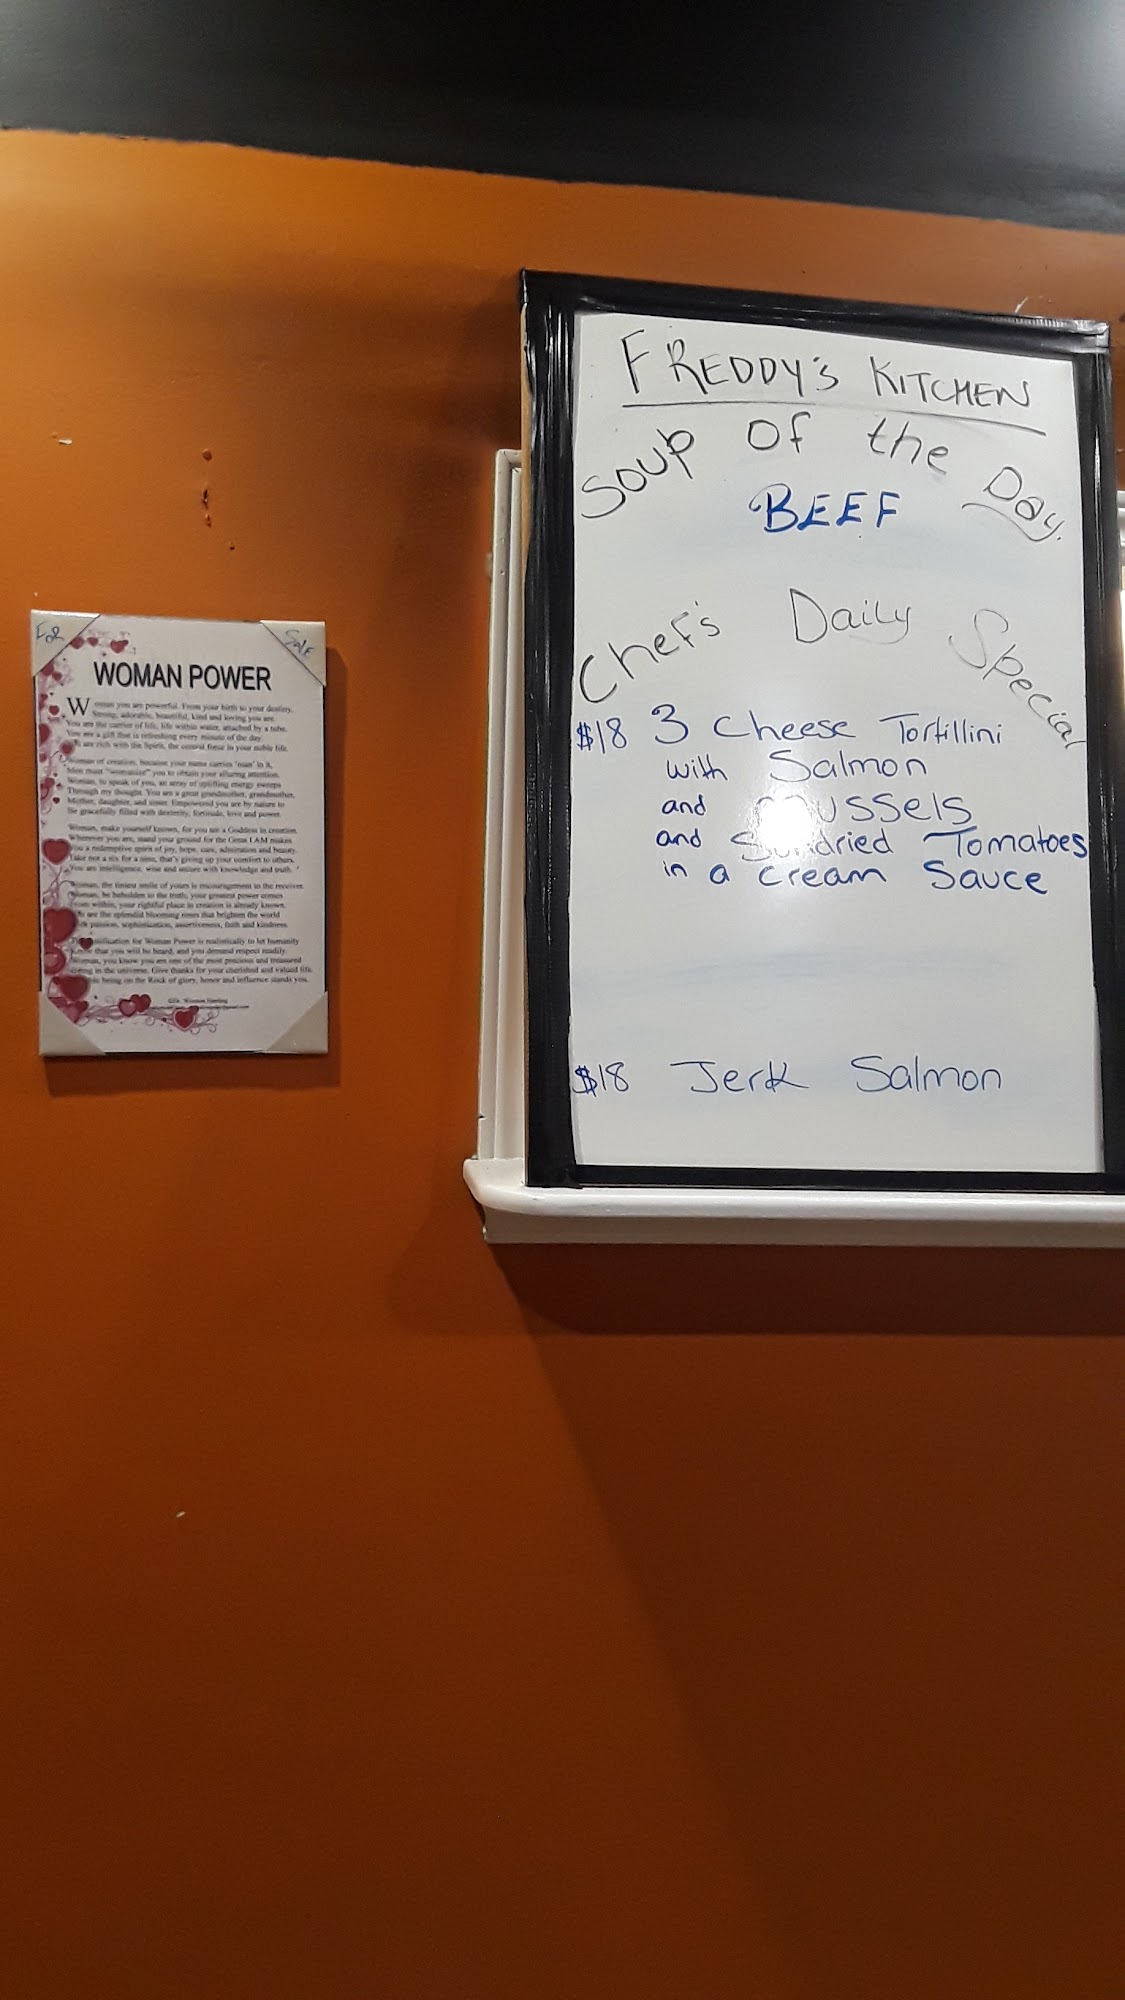 FREDDY's KITCHEN
Soup of the Day.
BEEF
Chef's Daily Special
$18 3 Cheese Tortillini
with Salmon
and mussels
and Sundried Tomatoes
in a cream Sauce
$18 Jerk Salmon
For Sale
WOMAN POWER
Woman you are powerful. From your birth to your destiny.
Strong, adorable, beautiful, kind and loving you are.
You are the carrier of life, life within water, attached by a tube.
You are a gift that is refreshing every minute of the day.
are rich with the Spirit, the central force in your noble life.
Woman of creation, because your name carries 'man' in it,
Men must "womanize" you to obtain your alluring attention.
Woman, to speak of you, an array of uplifting energy sweeps
Through my thought. You are a great grandmother, grandmother,
Mother, daughter, and sister. Empowered you are by nature to
Be gracefully filled with dexterity, fortitude, love and power.
Woman, make yourself known, for you are a Goddess in creation.
Wherever you are, stand your ground for the Great I AM makes
You a redemptive spirit of joy, hope, care, admiration and beauty.
Take not a six for a nine, that's giving up your comfort to others.
You are intelligence, wise and secure with knowledge and truth.
Woman, the tiniest smile of yours is encouragement to the receiver.
Woman, be beholden to the truth, your greatest power comes
From within, your rightful place in creation is already known.
are the splendid blooming roses that brighten the world
passion, sophistication, assertiveness, faith and kindness.
for Woman Power is realistically to let humanity
Know that you will be heard, and you demand respect readily.
Woman, you know you are one of the most precious and treasured
in the universe. Give thanks for your cherished and valued life.
being on the Rock of glory, honor and influence stands you.